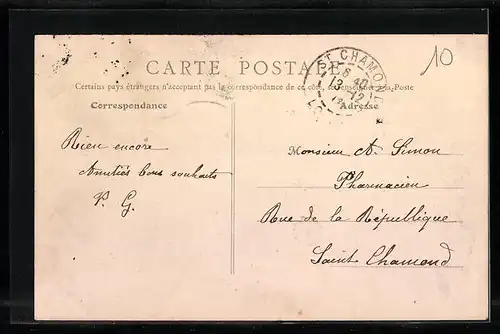 10
ST CHAMOND
6 40
13 - 12
CARTE POSTALE
Certains pays étrangers n'acceptant pas la correspondance de ce côté, se renseigner à la Poste
Correspondance
Adresse
Rien encore
Amitiés bons souhaits
P. G.
Monsieur A. Simon
Pharmacien
Rue de la République
Saint Chamond